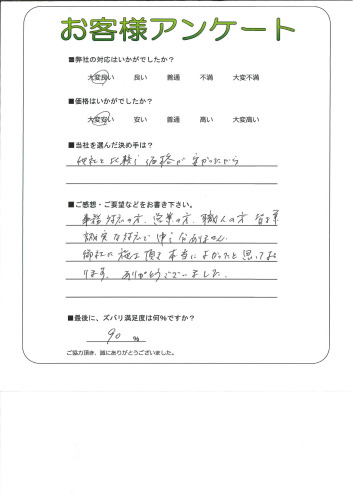 お客様アンケート
■弊社の対応はいかがでしたか?
大変良い 良い 普通 不満 大変不満
■価格はいかがでしたか?
大変安い 安い 普通 高い 大変高い
■当社を選んだ決め手は?
他社と比較し価格が安かったから
■ご感想・ご要望などをお書き下さい。
事務対応の方、営業の方、職人の方 皆様
誠実な対応で申し分ありません。
御社に施工頂き本当によかったと思ってお
ります。ありがとうございました。
■最後に、ズバリ満足度は何%ですか?
90 %
ご協力頂き、誠にありがとうございました。